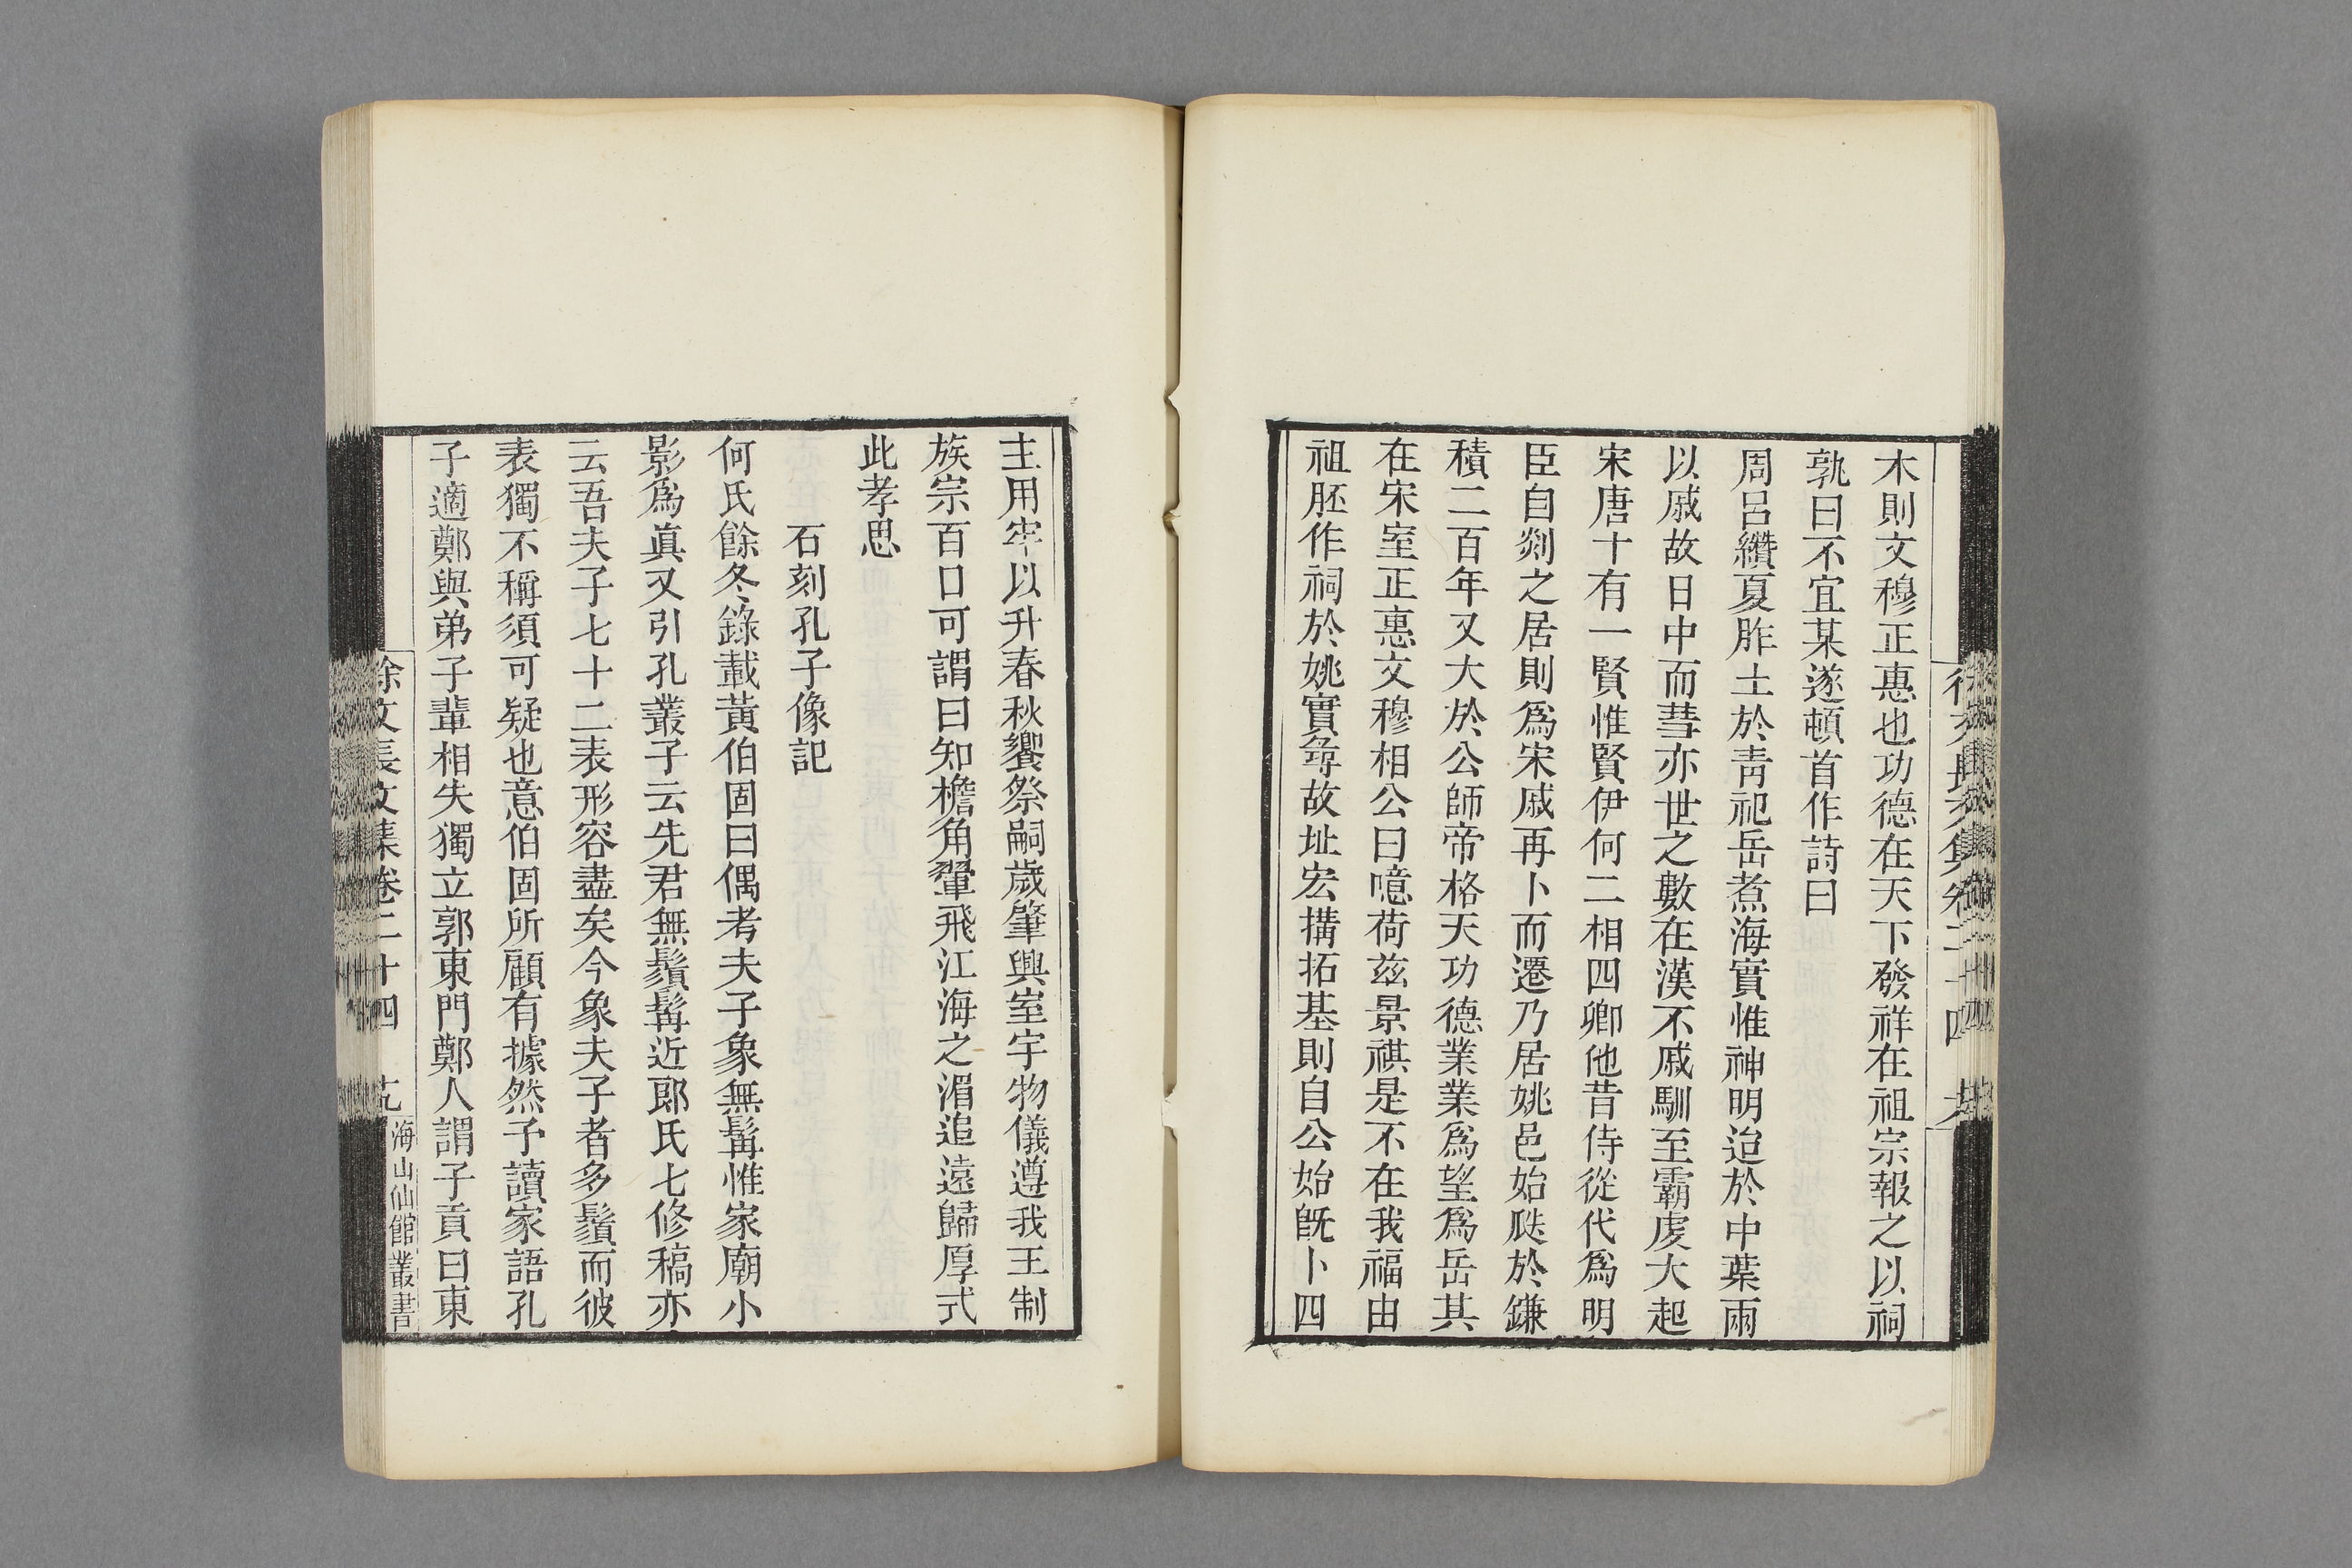 木則文穆正惠也功德在天下發祥在祖宗報之以祠
孰曰不宜某遂頓首作詩曰
周呂纘夏胙土於青祀岳煮海實惟神明迨於中葉雨
以戚故日中而彗亦世之數在漢不戚馴至霸虔大起
宋唐十有一賢惟賢伊何二相四卿他昔侍從代爲明
臣自剡之居則爲宋戚再卜而遷乃居姚邑始瓞於鎌
積二百年又大於公師帝格天功德業業爲望爲岳其
在宋室正惠文穆相公曰噫荷茲景祺是不在我福由
祖胚作祠於姚實尋故址宏搆拓基則自公始旣卜四
主用牢以升春秋饗祭嗣歲肇興室宇物儀遵我王制
族宗百口可謂曰知檐角翬飛江海之湄追遠歸厚式
此孝思
石刻孔子像記
何氏餘冬錄載黃伯固曰偶考夫子象無髯惟家廟小
影爲眞又引孔叢子云先君無鬚髯近郎氏七修稿亦
云吾夫子七十二表形容盡矣今象夫子者多鬚而彼
表獨不稱須可疑也意伯固所顧有據然予讀家語孔
子適鄭與弟子輩相失獨立郭東門鄭人謂子貢曰東
徐文長文集卷二十四
海山仙館叢書